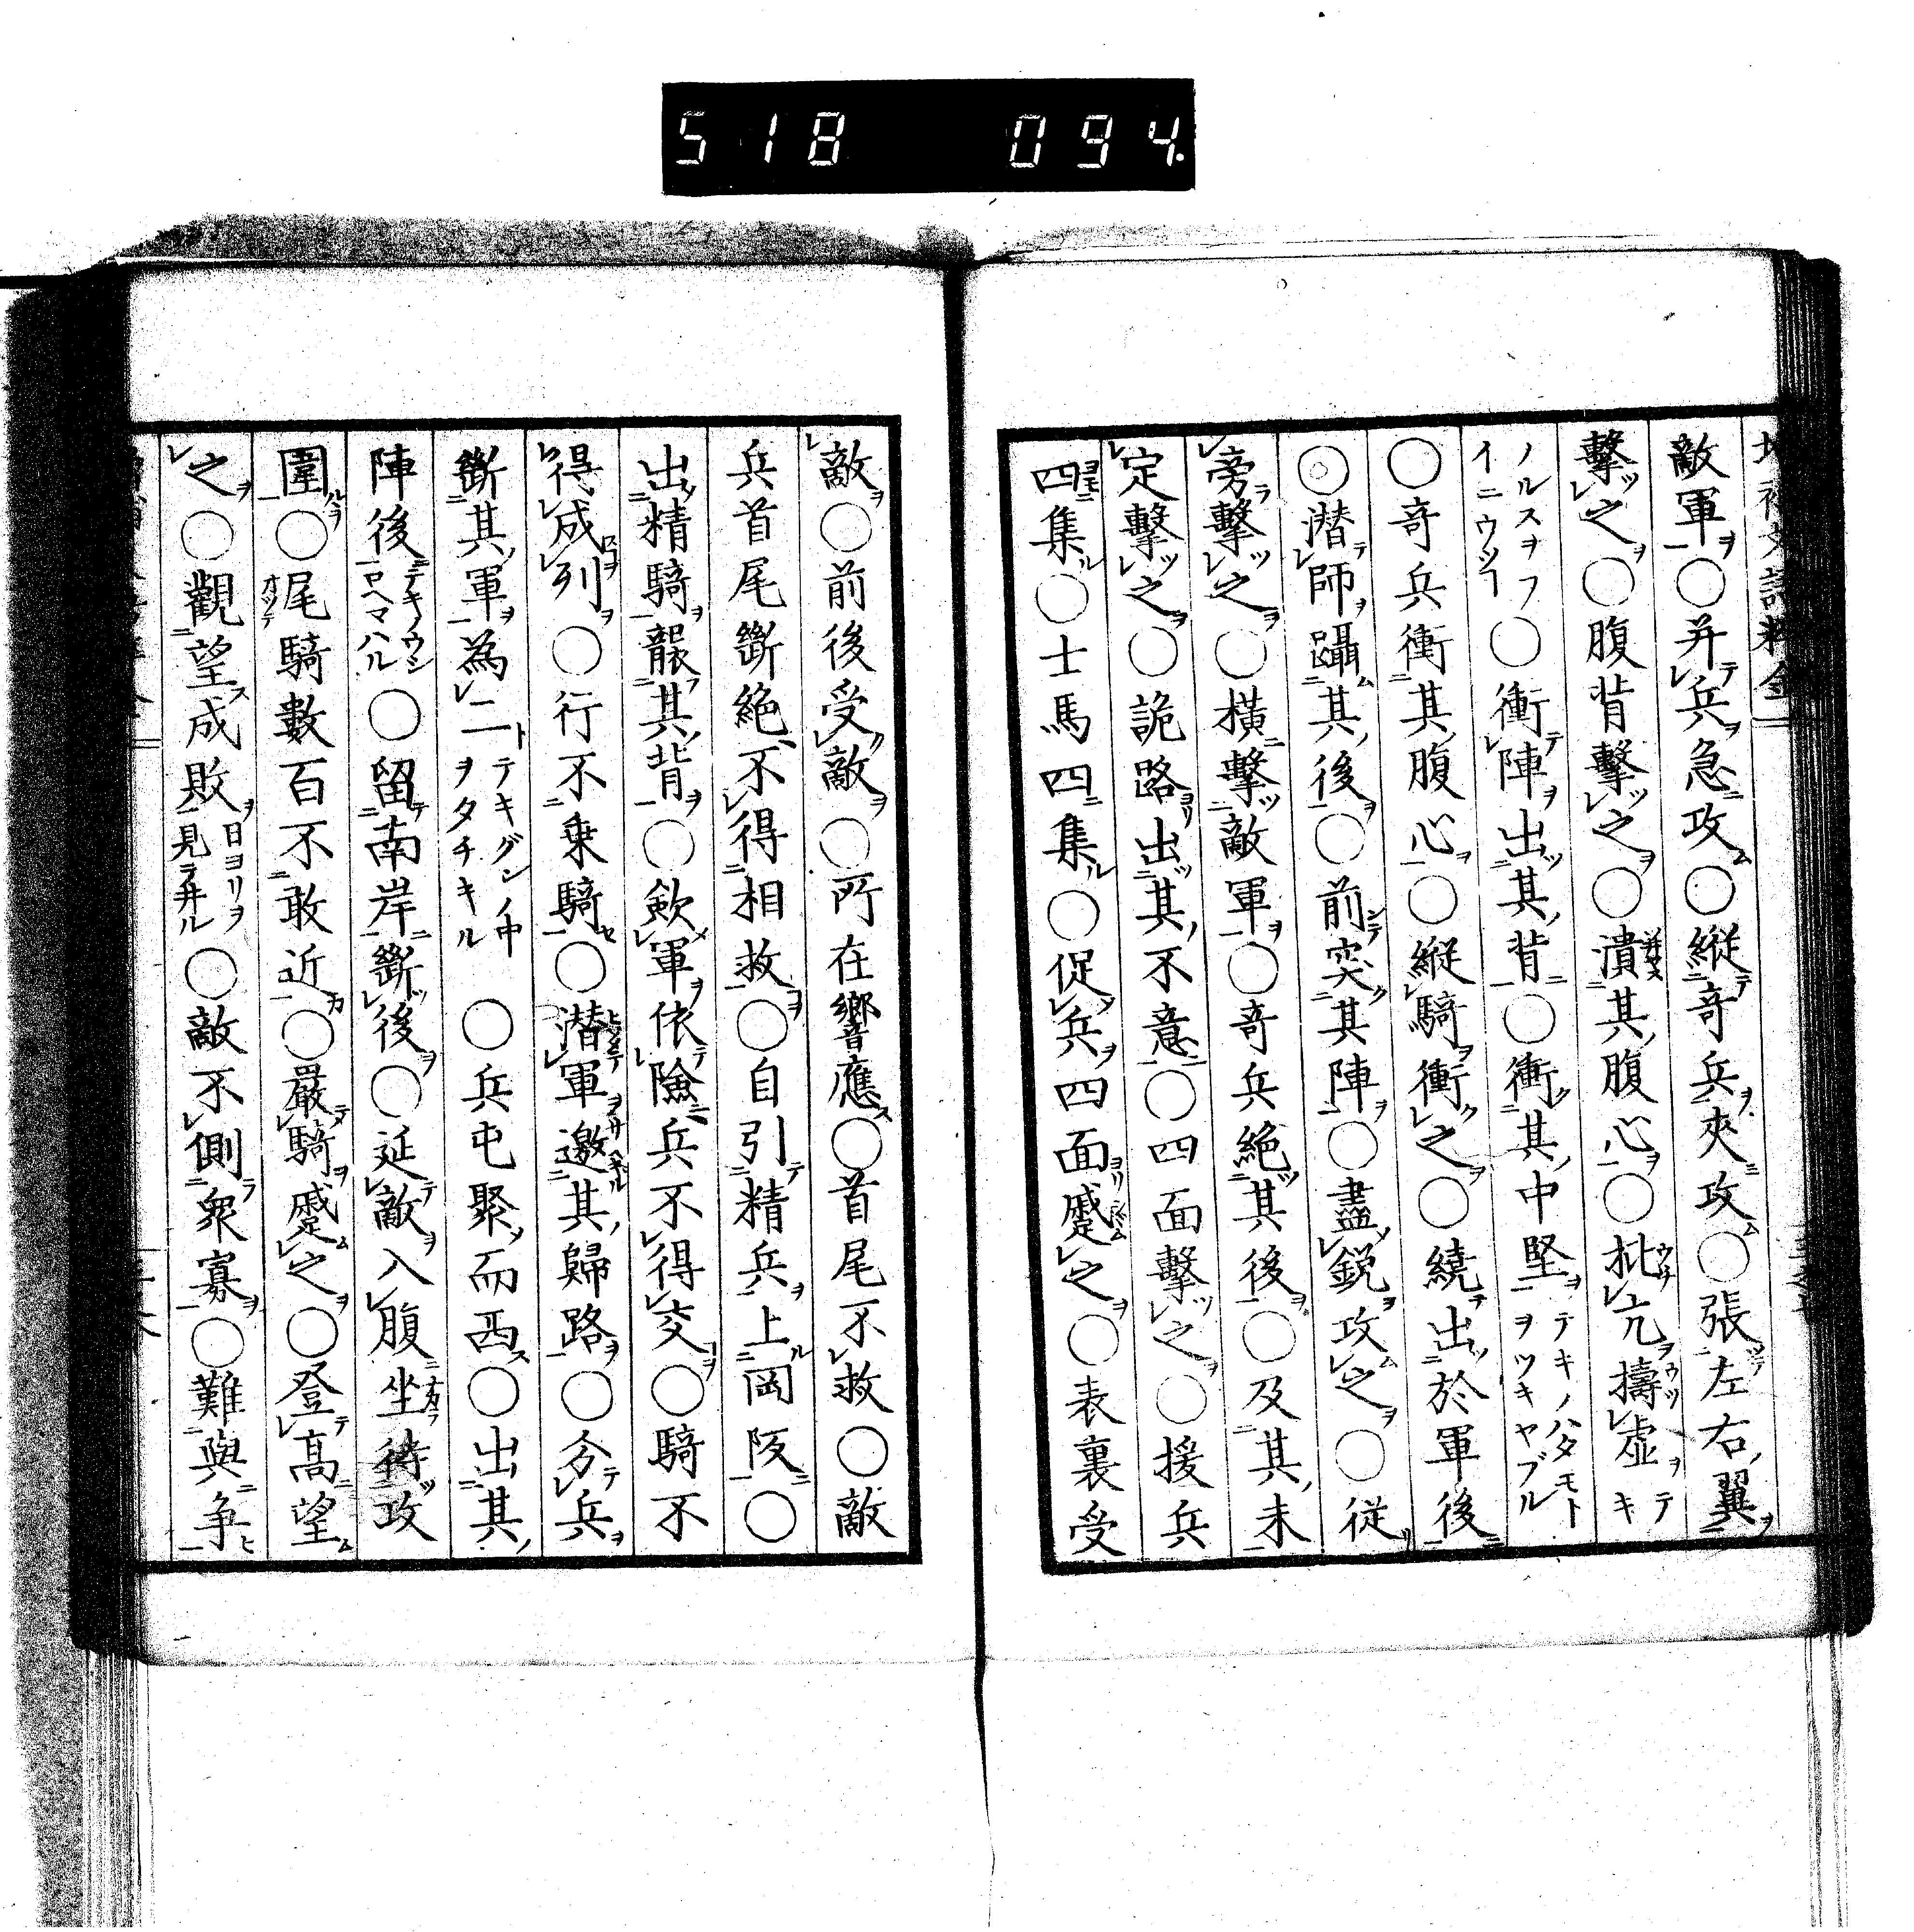 518 094.
敵軍○并兵急攻○縦竒兵夾攻○張左右翼
擊之○腹背擊之○潰其腹心○批亢擣虚テキ
ノルスヲフイニウツ○衝陣出其背○衝其中堅テキノハタモトヲツキヤブル
○竒兵衝其腹心○縦騎衝之○繞出於軍後
◎潜師躡其後○前突其陣○盡鋭攻之○従
旁擊之○橫擊敵軍○竒兵絶其後○及其未
定擊之○詭路出其不意○四面擊之○援兵
四集○士馬四集○促兵四面蹙之○表裏受
敵○前後受敵○所在響應○首尾不救○敵
兵首尾斷絶不得相救○自引精兵上岡阪○
出精騎襲其背○斂軍依險兵不得交○騎不
得成列○行不乗騎○潜軍邀其歸路○分兵
斷其軍為二テキグンノ中ヲタチキル○兵屯聚而西○出其
陣後テキノウシロヘマハル○留南岸斷後○延敵入腹坐待攻
圍○尾騎數百不敢近○嚴騎蹙之○登髙望
之○觀望成敗日ヨリヲ見テ井ル○敵不側衆寡○難與争